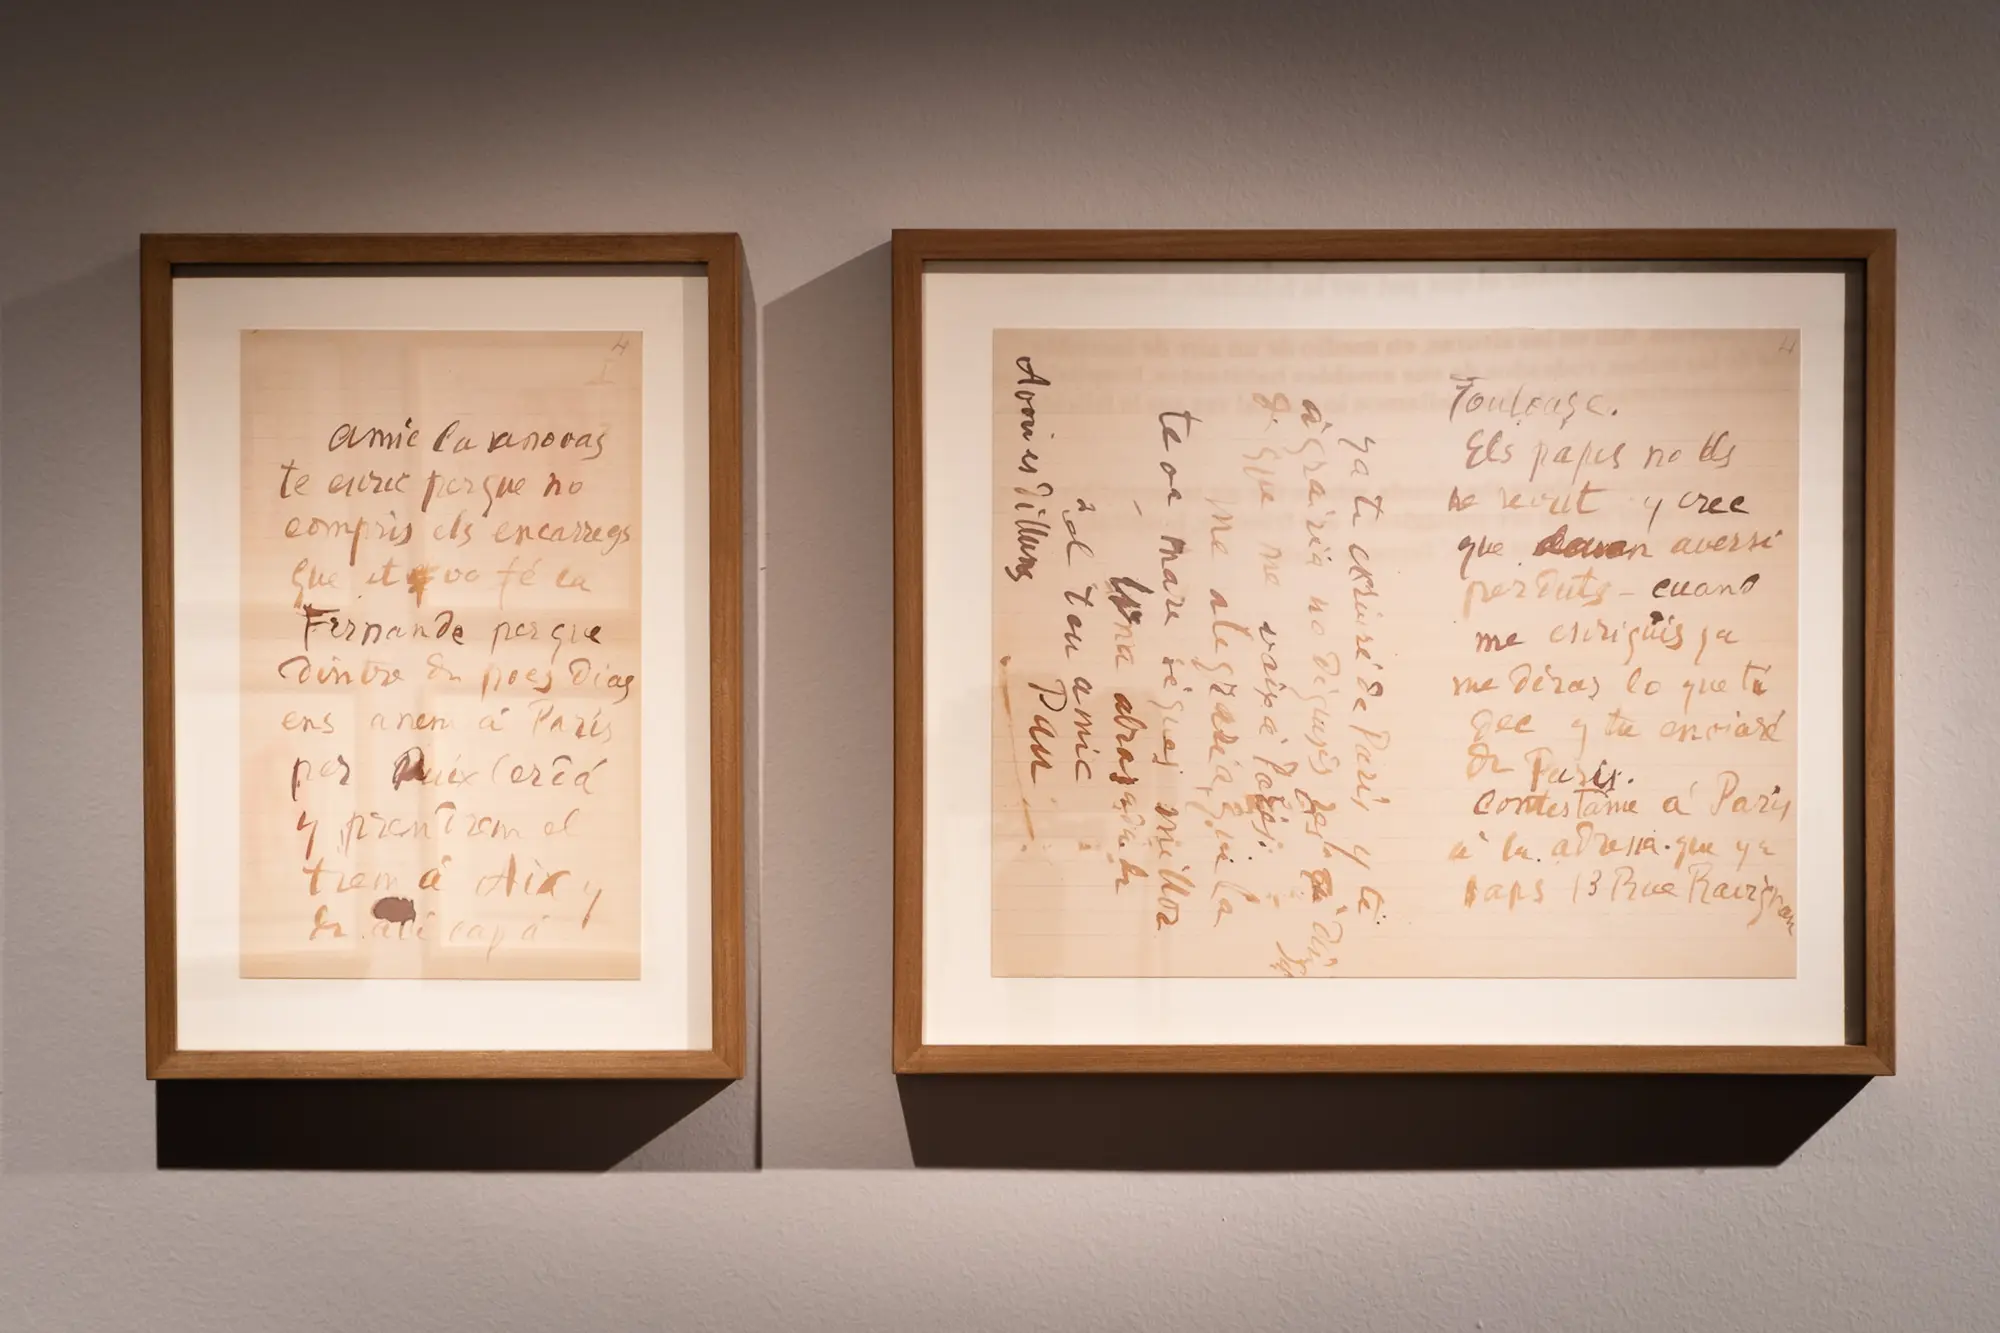 4
I
amic Casanovas
te escric perque no
compris els encarregs
que et va fé la
Fernande perque
dintre de pocs dias
ens anem á Paris
por Puixcerdá
y prendrem el
tren á Aix y
de alli cap á
4
Toulouse.
Els papes no els
he revut y crec
que aversi
perduts - cuand
me escriguis ya
me diras lo que tú
dec y tu enviaré
de Paris.
Contestáme á Paris
á la adressa que ya
saps 13 Rue Ravignan
ya te escriuré de Paris y te
agrairia no diguis res
que me vaix a Paris.
me alegraria que la
teva mare sigues millor
- Una abrasada de
tou amic
Pau
Avui es dilluns